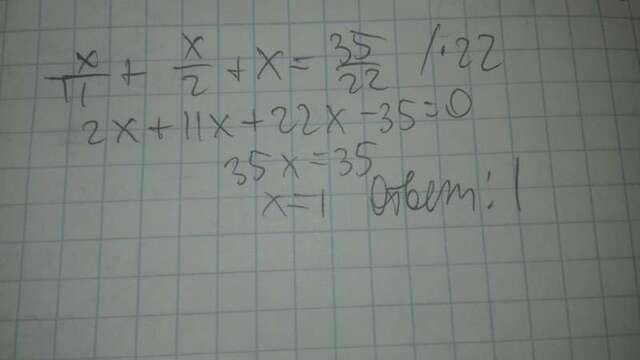 x/11 + x/2 + x = 35/22 /·22
2x + 11x + 22x - 35 = 0
35x = 35
x = 1 Ответ: 1